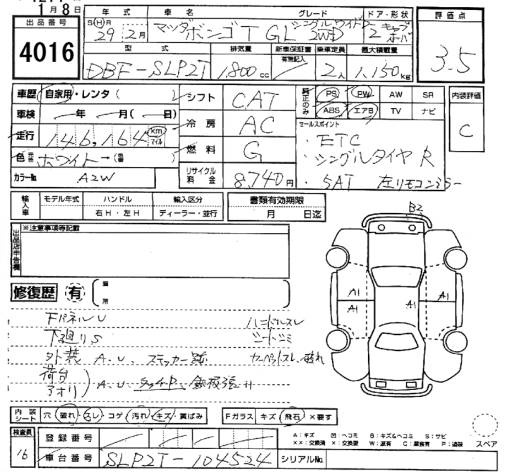 月8日
出品番号
4016
年式
車名
グレード
ドア・形状
評価点
S(H)
29年2月
マツダ ボンゴT GL シングルワイドロー 2WD
2
3.5
型式
排気量
新車保証書
乗車定員
最大積載量
DBF-SLP2T
1,800cc
有無記入
2人
1,150kg
車歴
自家用・レンタ(
シフト
CAT
PS
PW
AW
SR
内装評価
車検
年 月( )日
冷房
AC
ABS
エアB
TV
ナビ
C
走行
146,164
km
マイル
燃料
G
セールスポイント
・ETC
・シングルタイヤ R
・5AT 左リモコンミラー
色
ホワイト
カラーNo
A2W
リサイクル料金
8,740円
輸入車
モデル年式
ハンドル
輸入区分
書類有効期限
右H・左H
ディーラー・並行
月 日迄
出品店申告欄
※注意事項等記載
B2
修復歴
有
箇所
A1
A1
A1
FパネルU
ハンドルスレ
下廻りS
シートシミ
外装 A.U. ステッカー跡
荷台
アオリ
A.U
内装シート
穴
破れ
スレ
コゲ
汚れ
キズ
黄ばみ
Fガラス
キズ
飛石
×要す
検査員
16
登録番号
車台番号
SLP2T-104524
シリアルNo.
A:キズ
U:ヘコミ
B:キズ&ヘコミ
S:サビ
XX:交換済
X:交換要
W:波有
C:腐食有
P:塗装
スペア